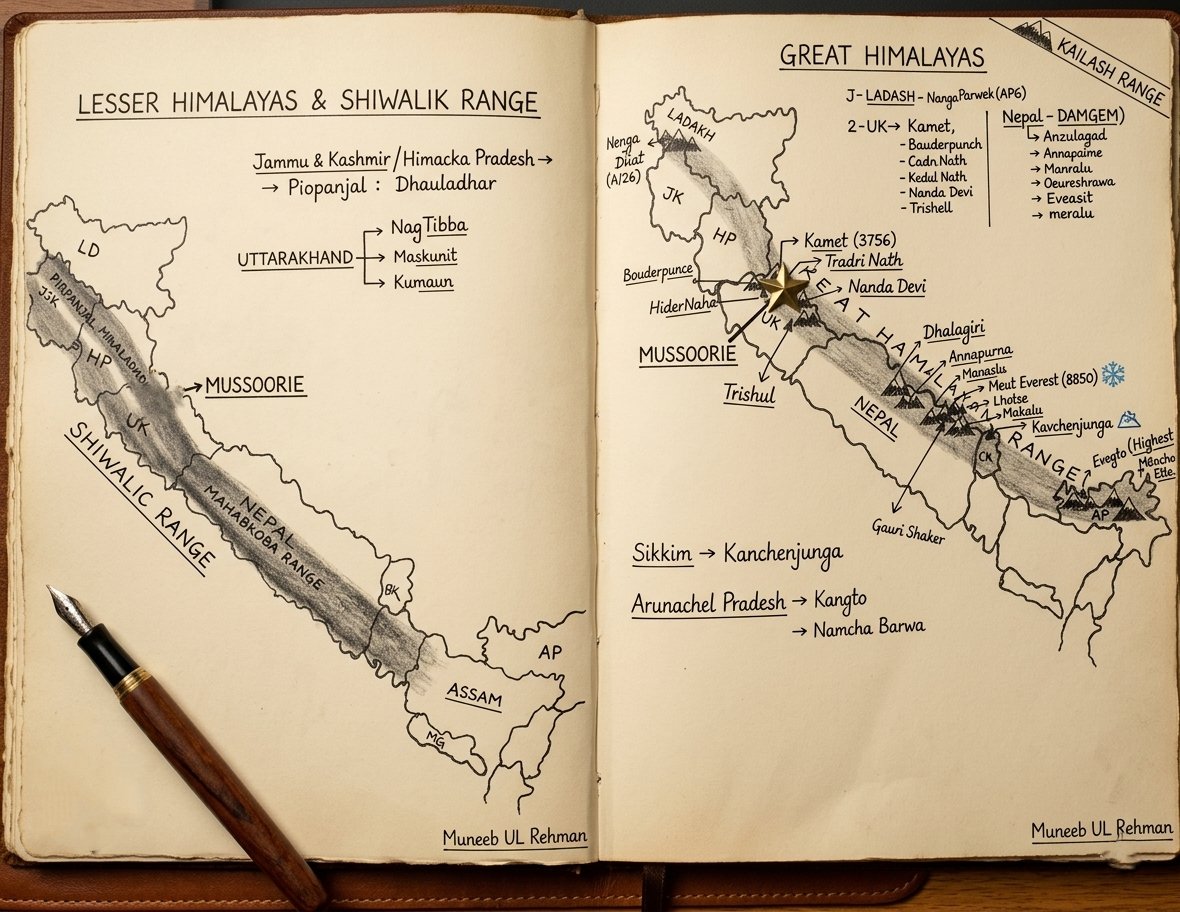 LESSER HIMALAYAS & SHIWALIK RANGE
Jammu & Kashmir/Himacka Pradesh →
→ Piopanjal : Dhauladhar
UTTARAKHAND
Nag Tibba
Maskunit
Kumaun
LD
PIRPANJAL
JSK
HP
UK
→ MUSSOORIE
SHIWALIC RANGE
NEPAL
MAHABKOBA RANGE
BK
AP
ASSAM
MG
Muneeb UL Rehman
GREAT HIMALAYAS
KAILASH RANGE
J- LADASH - Nanga Parwek (AP6)
2-UK→ Kamet,
- Bauderpunch
- Cadn Nath
- Kedul Nath
- Nanda Devi
- Trishell
Nepal - DAMGEM)
→ Anzulagad
→ Annapaime
→ Manralu
→ Oeureshrawa
→ Eveasit
→ meralu
LADAKH
Nenga
Duat
(A/26)
JK
HP
Kamet (3756)
Tradri Nath
Nanda Devi
Bouderpunce
HiderNaha
UK
MUSSOORIE
Trishul
KEAT HAMALA RANGE
Dhalagiri
Annapurna
Manaslu
Meut Everest (8850)
Lhotse
Makalu
Kavchenjunga
NEPAL
CK
Evegto (Highest
Mancho
Ette.
AP
Gauri Shaker
Sikkim → Kanchenjunga
Arunachel Pradesh → Kangto
→ Namcha Barwa
Muneeb UL Rehman